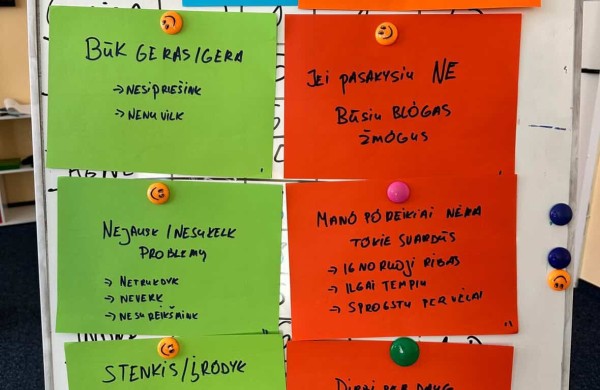 BŪK GERAS/GERA
→ NESIPRIEŠINK
→ NENUVILK
JEI PASAKYSIU NE
BŪSIU BLOGAS
ŽMOGUS
NEJAUSK/NESUKELK
PROBLEMŲ
→ NETRUKDYK
→ NEVERK
→ NESUREIKŠMINK
MANO POREIKIAI NĖRA
TOKIE SVARBŪS
→ IGNORUOJI RIBAS
→ ILGAI TEMPIU
→ SPROGSTU PER VĖLAI
STENKIS/ĮRODYK
DIRBI PER DAUG